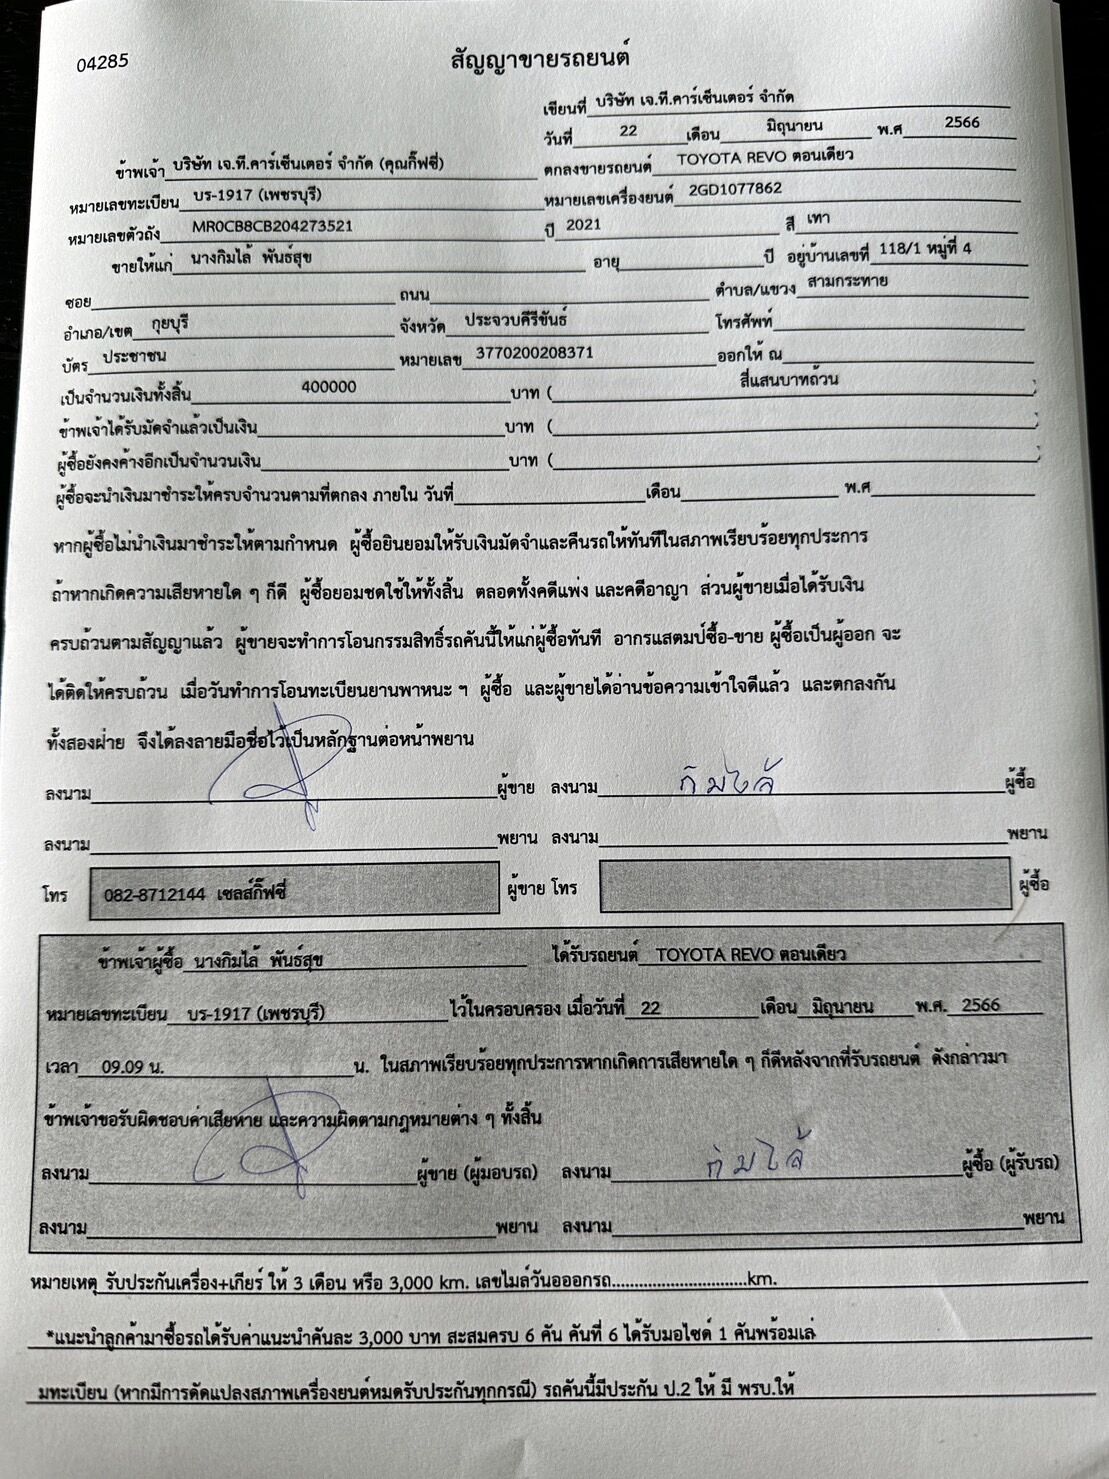 04285
สัญญาขายรถยนต์
เขียนที่ บริษัท เจ.ที.คาร์เซ็นเตอร์ จำกัด
วันที่ 22 เดือน มิถุนายน พ.ศ 2566
ข้าพเจ้า บริษัท เจ.ที.คาร์เซ็นเตอร์ จำกัด (คุณกิ๊ฟซี่) ตกลงขายรถยนต์ TOYOTA REVO ตอนเดียว
หมายเลขทะเบียน บร-1917 (เพชรบุรี) หมายเลขเครื่องยนต์ 2GD1077862
หมายเลขตัวถัง MR0CB8CB204273521 ปี 2021 สี เทา
ขายให้แก่ นางกิมไล้ พันธ์สุข อายุ ปี อยู่บ้านเลขที่ 118/1 หมู่ที่ 4
ซอย ถนน ตำบล/แขวง สามกระทาย
อำเภอ/เขต กุยบุรี จังหวัด ประจวบคีรีขันธ์ โทรศัพท์
บัตร ประชาชน หมายเลข 3770200208371 ออกให้ ณ
เป็นจำนวนเงินทั้งสิ้น 400000 บาท ( สี่แสนบาทถ้วน )
ข้าพเจ้าได้รับมัดจำแล้วเป็นเงิน บาท ( )
ผู้ซื้อยังคงค้างอีกเป็นจำนวนเงิน บาท ( )
ผู้ซื้อจะนำเงินมาชำระให้ครบจำนวนตามที่ตกลง ภายใน วันที่ เดือน พ.ศ
หากผู้ซื้อไม่นำเงินมาชำระให้ตามกำหนด ผู้ซื้อยินยอมให้รับเงินมัดจำและคืนรถให้ทันทีในสภาพเรียบร้อยทุกประการ
ถ้าหากเกิดความเสียหายใด ๆ ก็ดี ผู้ซื้อยอมชดใช้ให้ทั้งสิ้น ตลอดทั้งคดีแพ่ง และคดีอาญา ส่วนผู้ขายเมื่อได้รับเงิน
ครบถ้วนตามสัญญาแล้ว ผู้ขายจะทำการโอนกรรมสิทธิ์รถคันนี้ให้แก่ผู้ซื้อทันที อากรแสตมป์ซื้อ-ขาย ผู้ซื้อเป็นผู้ออก จะ
ได้ติดให้ครบถ้วน เมื่อวันทำการโอนทะเบียนยานพาหนะ ฯ ผู้ซื้อ และผู้ขายได้อ่านข้อความเข้าใจดีแล้ว และตกลงกัน
ทั้งสองฝ่าย จึงได้ลงลายมือชื่อไว้เป็นหลักฐานต่อหน้าพยาน
ลงนาม ผู้ขาย ลงนาม กิมไล้ ผู้ซื้อ
ลงนาม พยาน ลงนาม พยาน
โทร 082-8712144 เซลส์กิ๊ฟซี่ ผู้ขาย โทร ผู้ซื้อ
ข้าพเจ้าผู้ซื้อ นางกิมไล้ พันธ์สุข ได้รับรถยนต์ TOYOTA REVO ตอนเดียว
หมายเลขทะเบียน บร-1917 (เพชรบุรี) ไว้ในครอบครอง เมื่อวันที่ 22 เดือน มิถุนายน พ.ศ. 2566
เวลา 09.09 น. น. ในสภาพเรียบร้อยทุกประการหากเกิดการเสียหายใด ๆ ก็ดีหลังจากที่รับรถยนต์ ดังกล่าวมา
ข้าพเจ้าขอรับผิดชอบค่าเสียหาย และความผิดตามกฎหมายต่าง ๆ ทั้งสิ้น
ลงนาม ผู้ขาย (ผู้มอบรถ) ลงนาม กิมไล้ ผู้ซื้อ (ผู้รับรถ)
ลงนาม พยาน ลงนาม พยาน
หมายเหตุ รับประกันเครื่อง+เกียร์ ให้ 3 เดือน หรือ 3,000 km. เลขไมล์วันอออกรถ..............................km.
*แนะนำลูกค้ามาซื้อรถได้รับค่าแนะนำคันละ 3,000 บาท สะสมครบ 6 คัน คันที่ 6 ได้รับมอไซด์ 1 คันพร้อมเล่
มทะเบียน (หากมีการดัดแปลงสภาพเครื่องยนต์หมดรับประกันทุกกรณี) รถคันนี้มีประกัน ป.2 ให้ มี พรบ.ให้